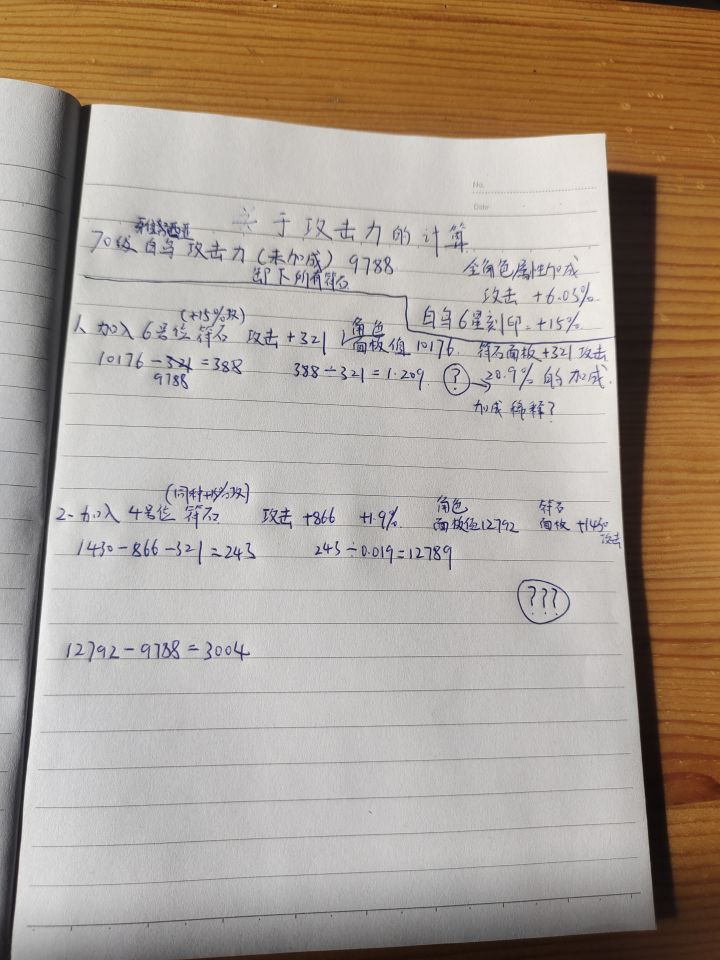 No.
Date
关于攻击力的计算
70级白鸟攻击力(未加成) 9788
卸下所有符石
全角色属性加成
攻击 +6.05%
白鸟6星刻印:+15%
(+15%攻)
1. 加入6号位符石 攻击+321 角色面板值10176. 符石面板+321攻击
10176-321=388 388÷321=1.209 ? → 20.9%的加成.
9788
加成稀释?
(同种+15%攻)
2. 加入4号位符石 攻击+866 +1.9% 角色面板值12792 符石面板+1430攻击
1430-866-321=243 243÷0.019=12789
???
12792-9788=3004